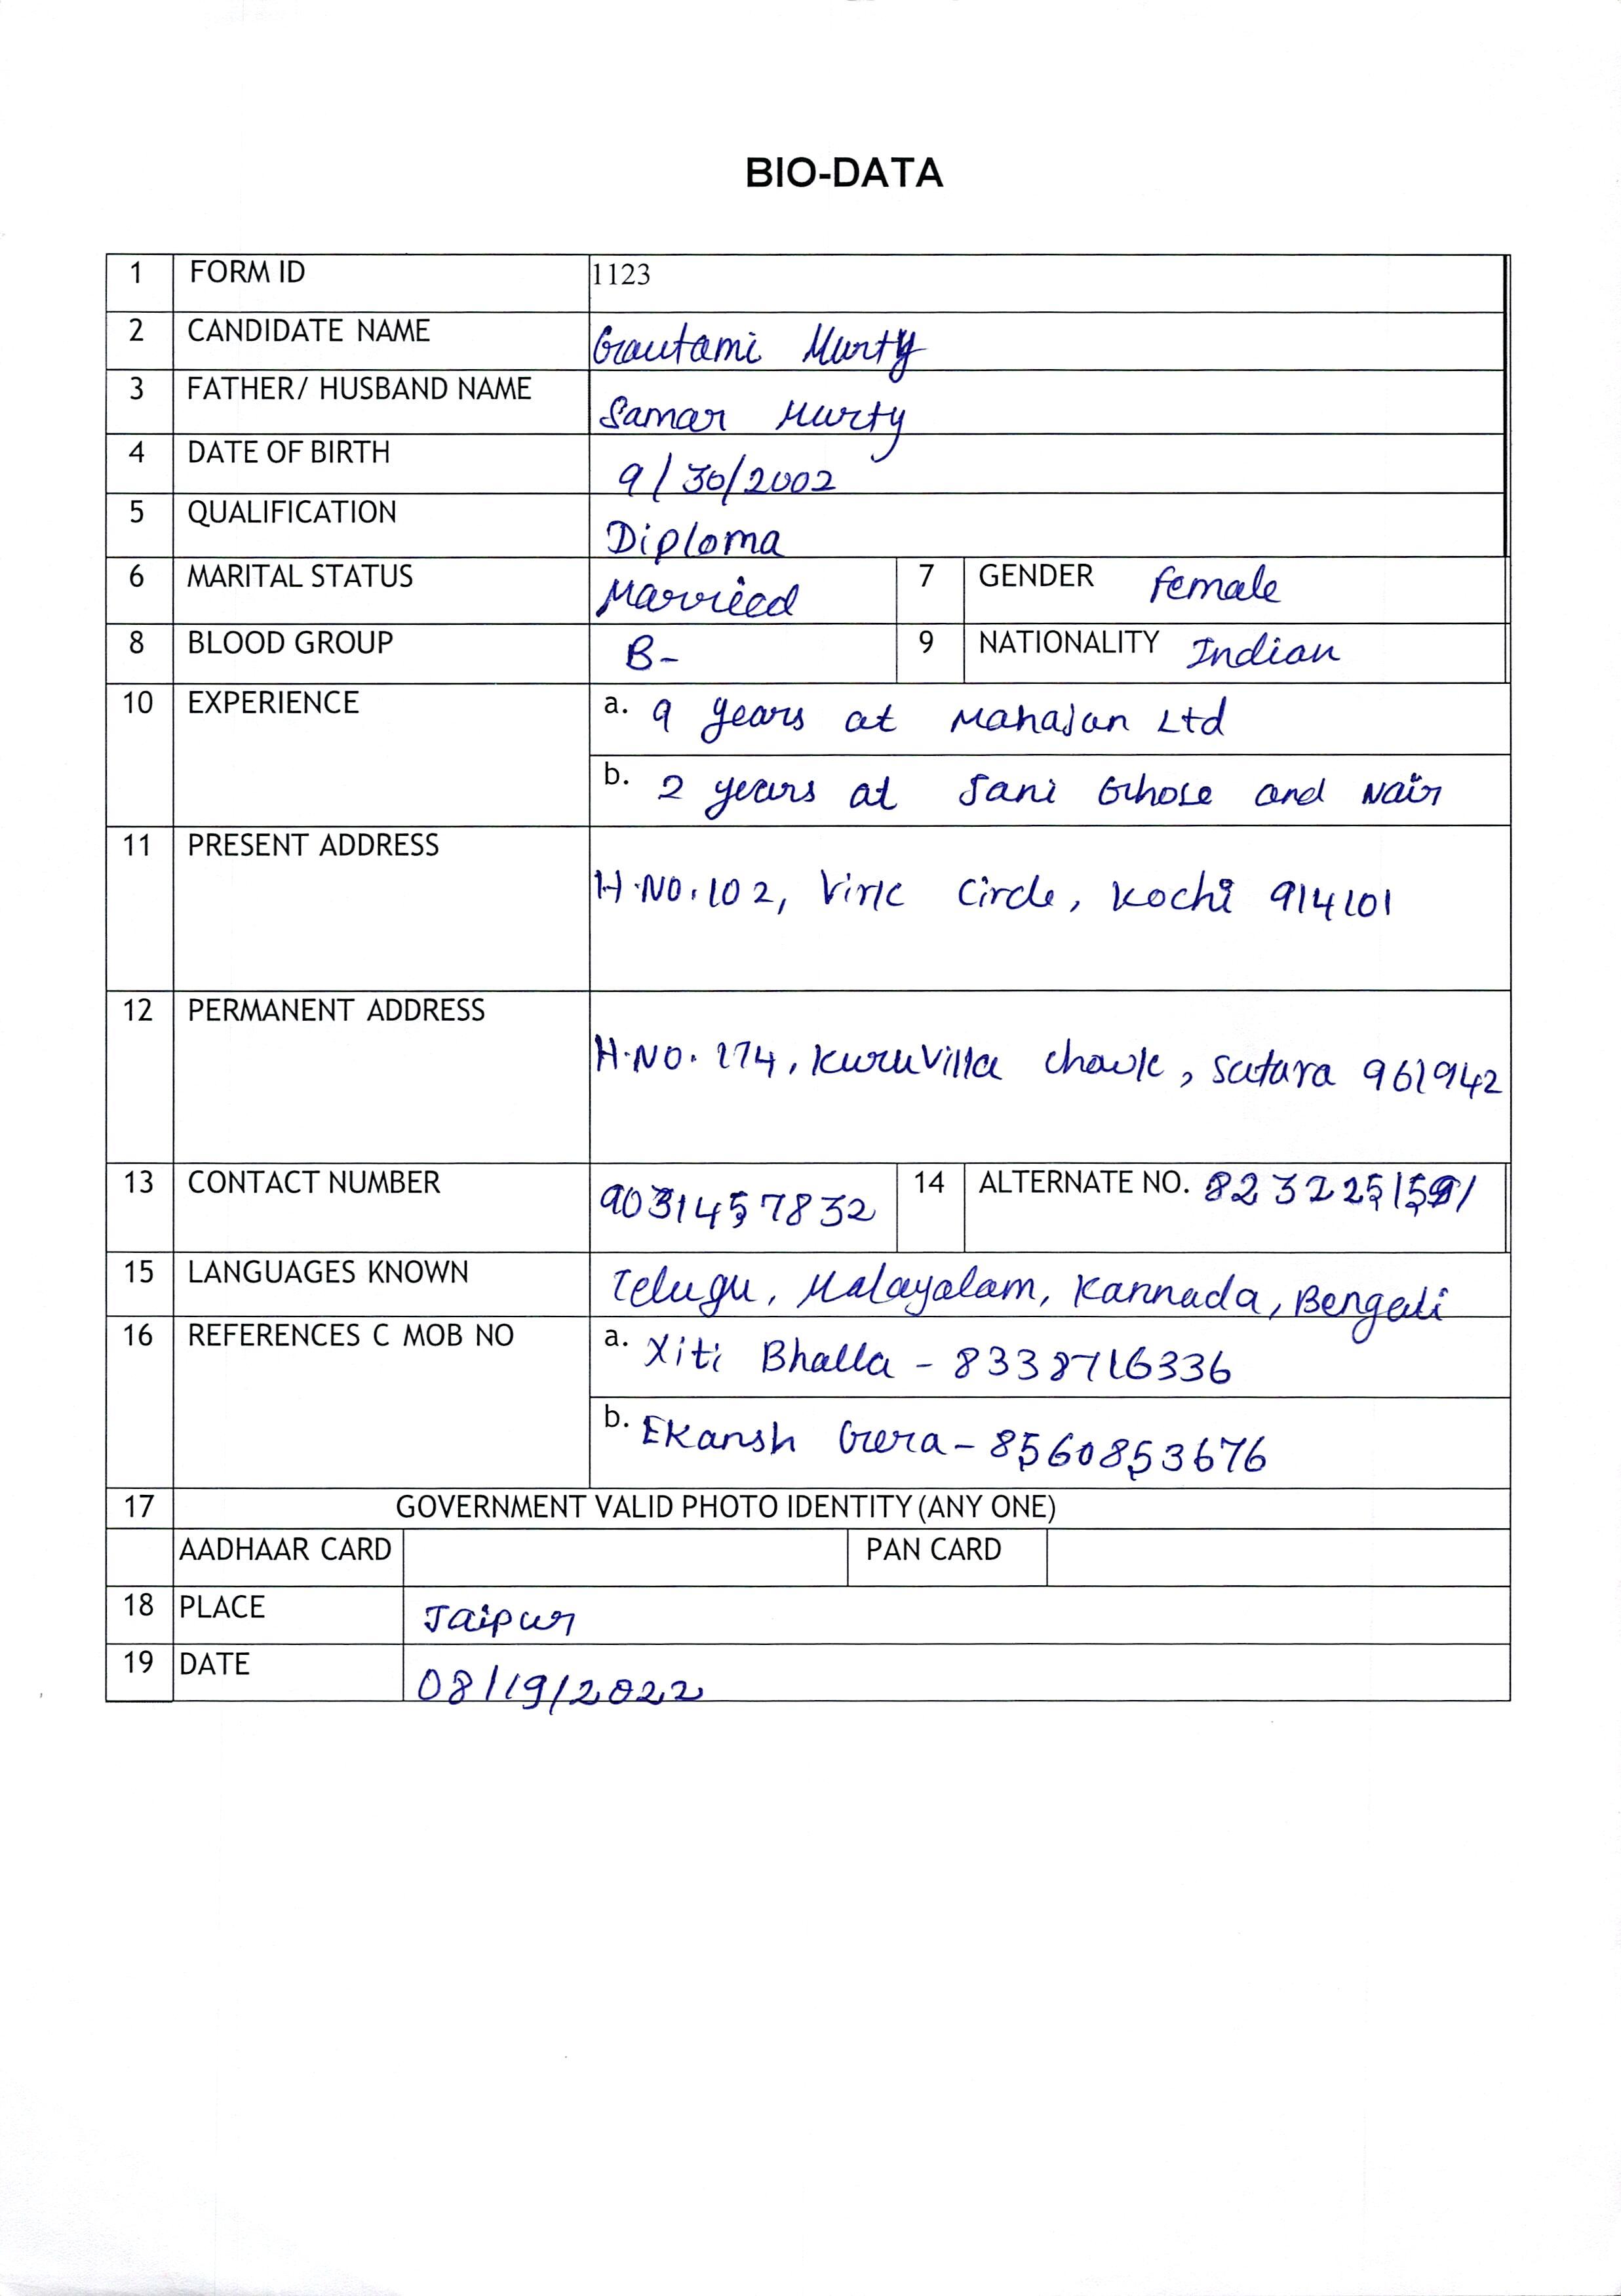 BIO-DATA
1 FORM ID 1123
2 CANDIDATE NAME Gautami Murty
3 FATHER/ HUSBAND NAME Samar Murty
4 DATE OF BIRTH 9/30/2002
5 QUALIFICATION Diploma
6 MARITAL STATUS Married 7 GENDER Female
8 BLOOD GROUP B- 9 NATIONALITY Indian
10 EXPERIENCE a. 9 years at Mahajan Ltd
b. 2 years at Sani Ghose and Nair
11 PRESENT ADDRESS
H.NO.102, Virk Circle, Kochi 914101
12 PERMANENT ADDRESS
H.NO. 274, Kuruvilla Chowk, Satara 961942
13 CONTACT NUMBER 9031457832 14 ALTERNATE NO.
15 LANGUAGES KNOWN Telugu, Malayalam, Kannada, Bengali
16 REFERENCES C MOB NO a. Xiti Bhalla - 8338716336
b. Ekansh Gera - 8560853676
17 GOVERNMENT VALID PHOTO IDENTITY (ANY ONE)
AADHAAR CARD PAN CARD
18 PLACE Jaipur
19 DATE 08/19/2022